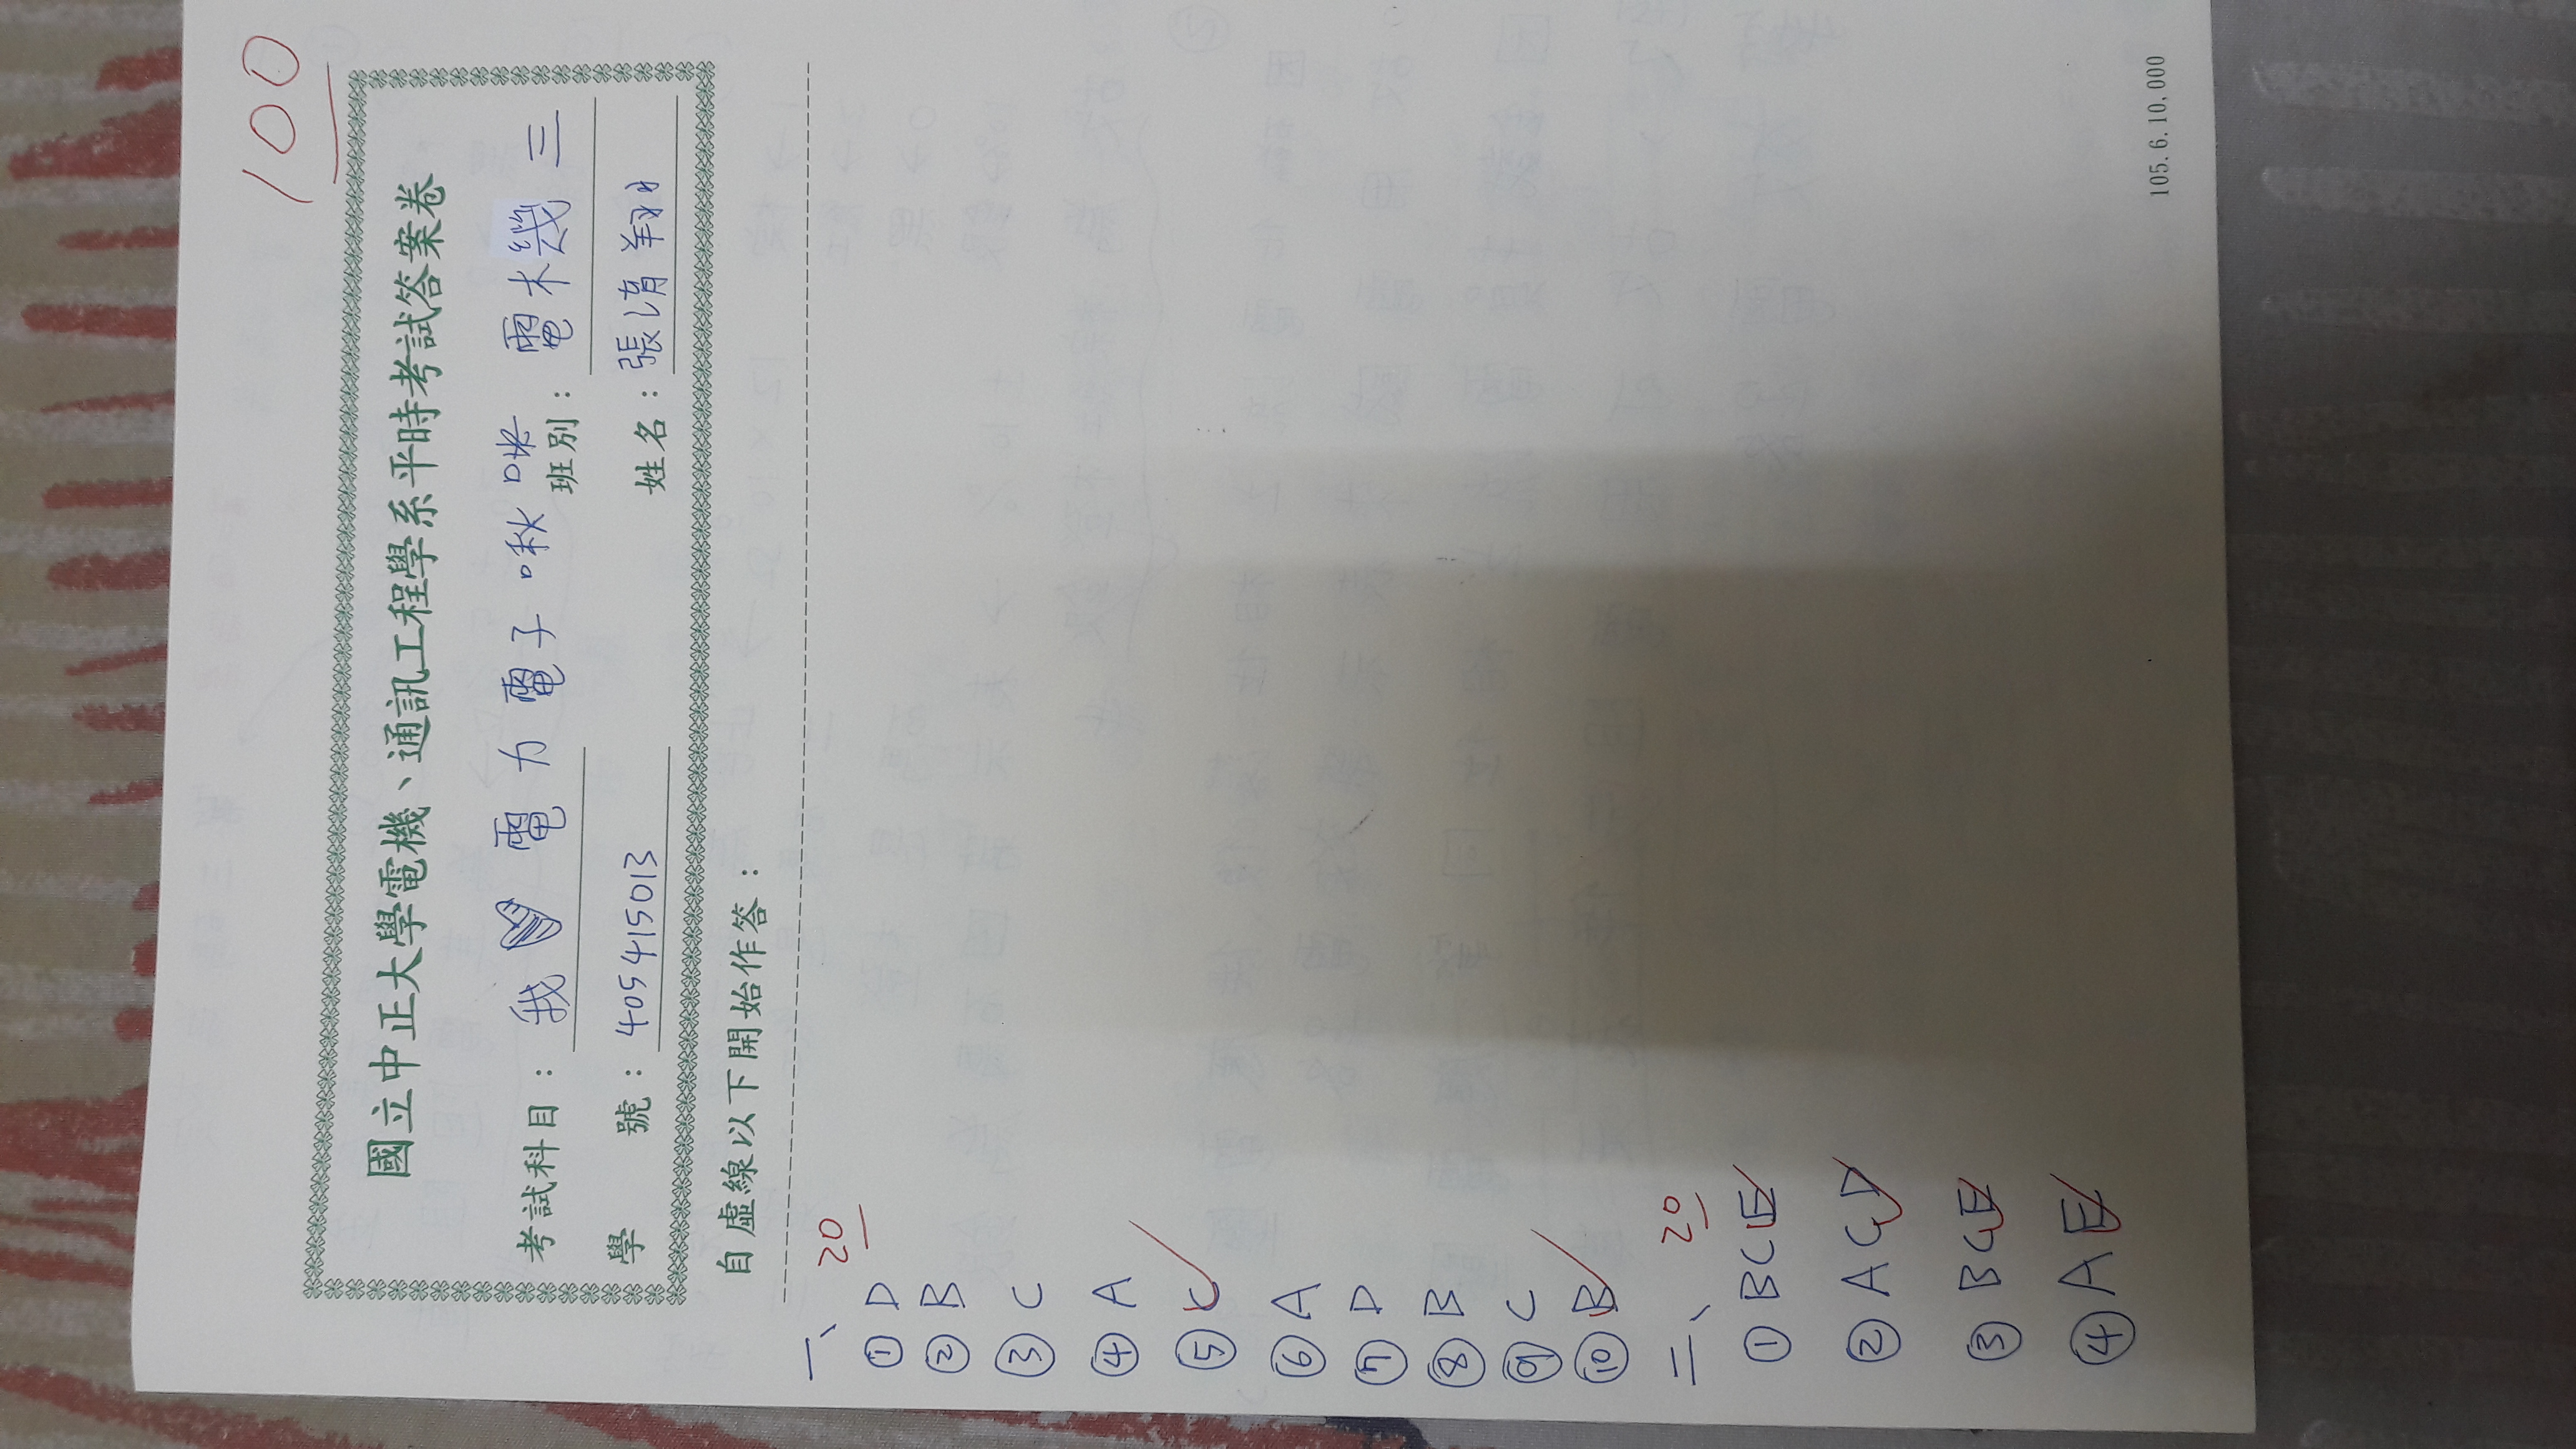 100
國立中正大學電機、通訊工程學系平時考試答案卷
考試科目：我 電力電子啾咪 班別：電機三
學 號：405415013 姓名：張清翔
自虛線以下開始作答：
一、 20
① D
② B
③ C
④ A
⑤ C
⑥ A
⑦ D
⑧ B
⑨ C
⑩ B
二、 20
① BCE
② ACD
③ BCE
④ AE
105.6.10,000